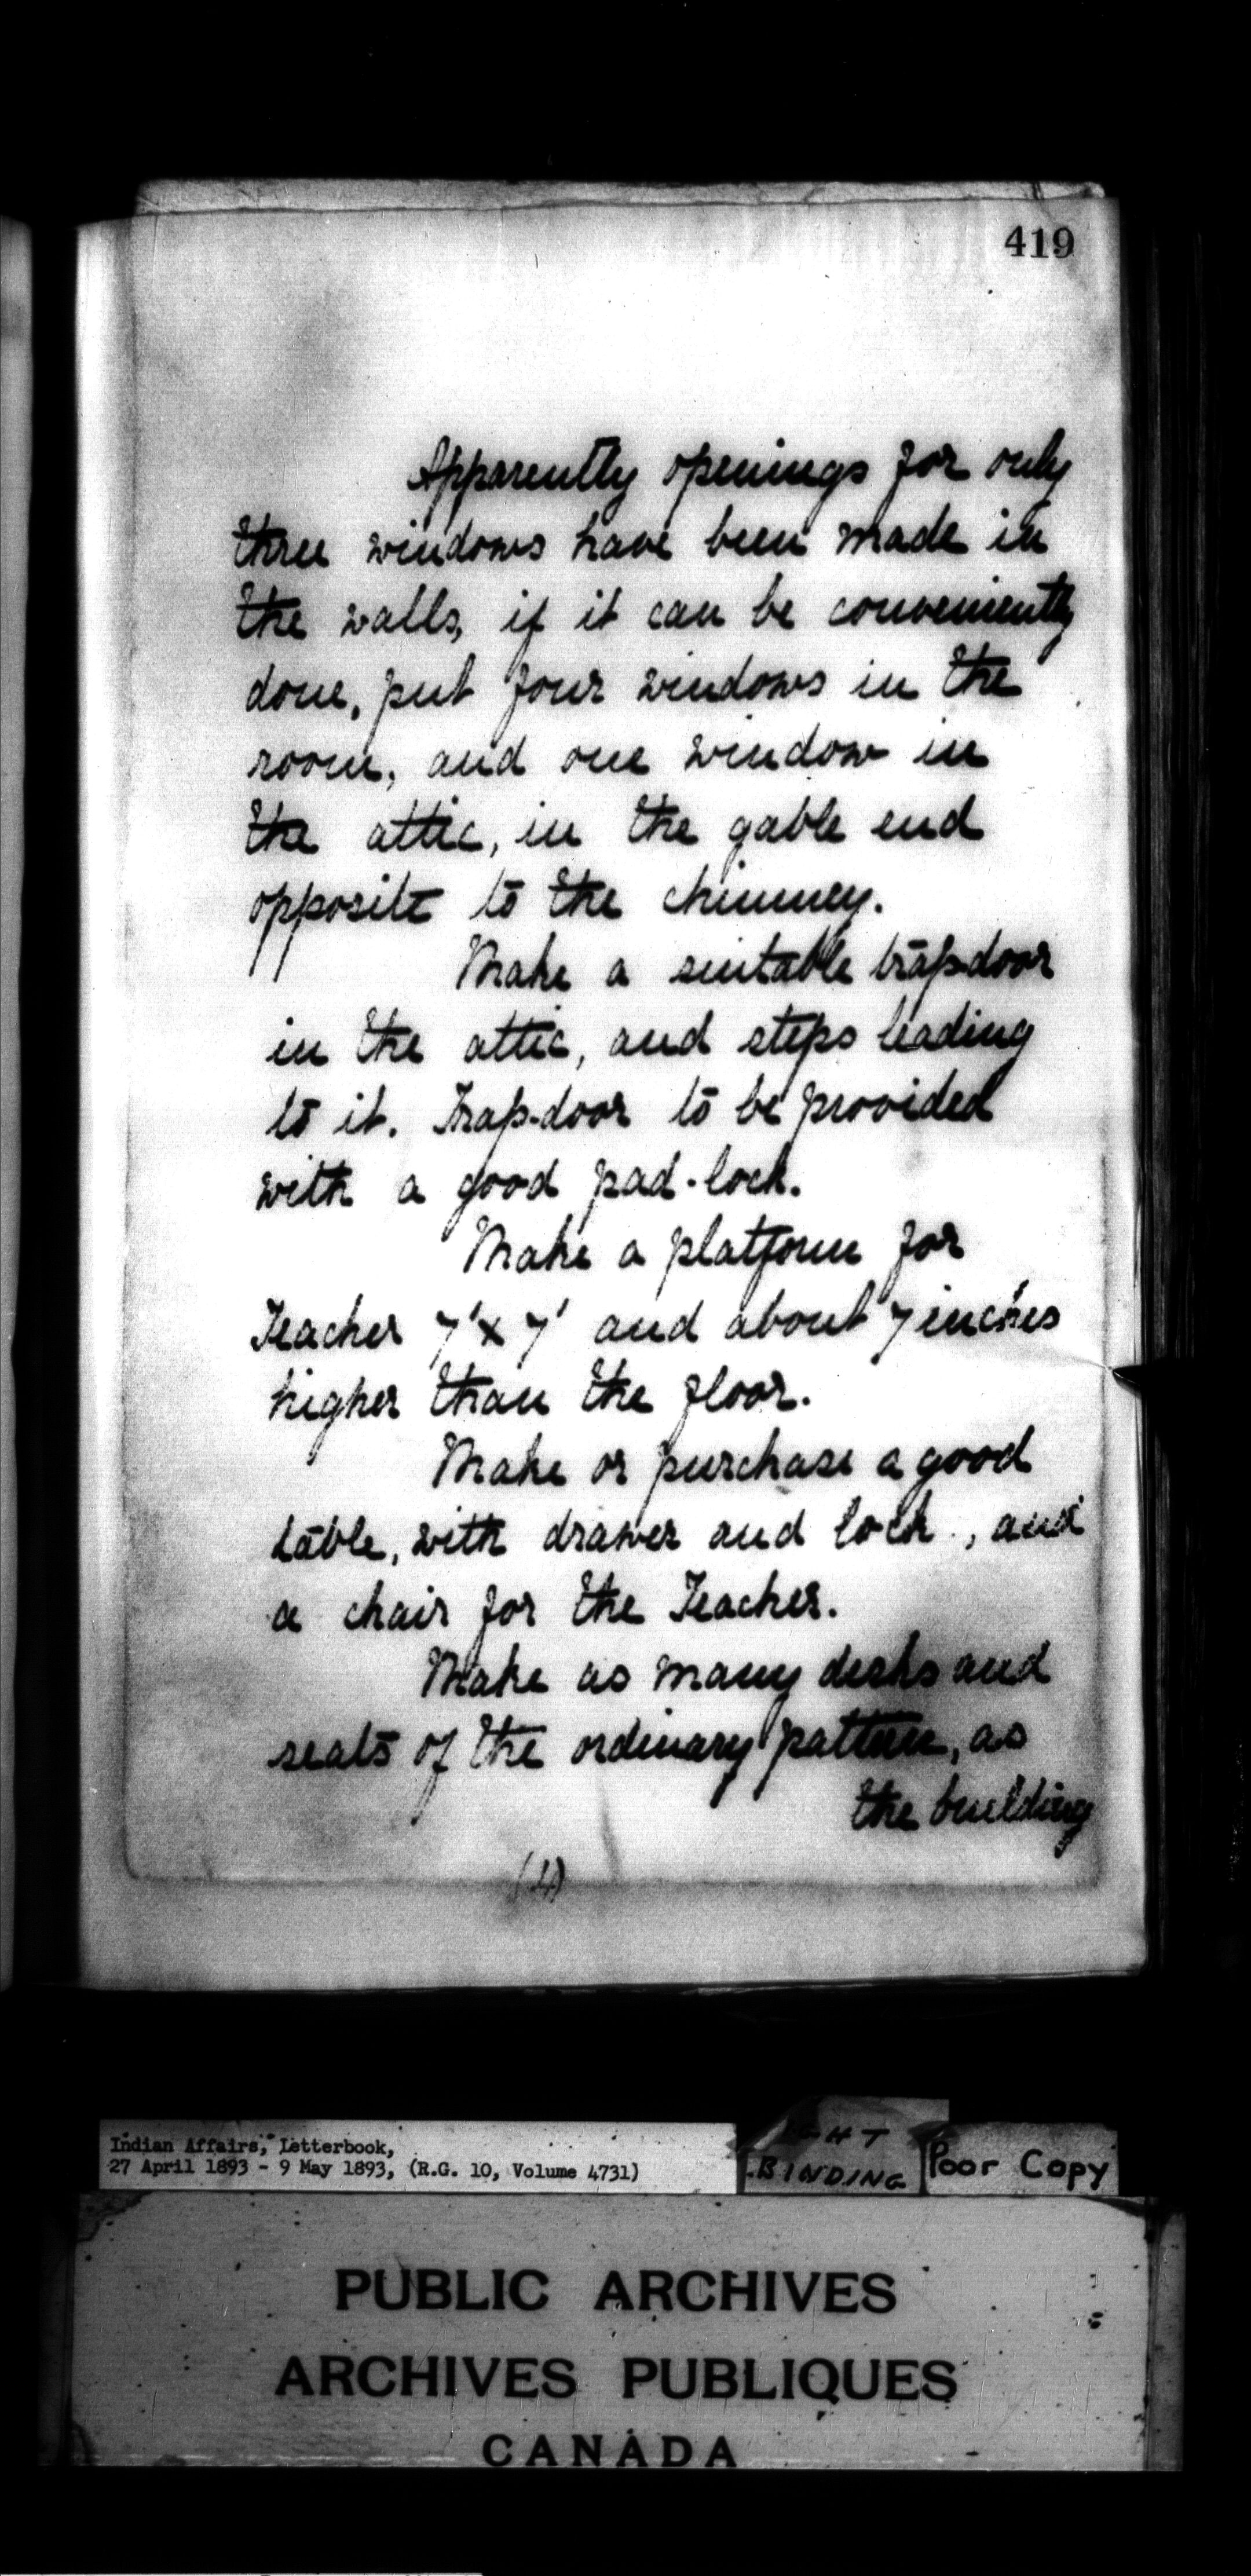 419
Apparently openings for only
three windows have been made in
the walls, if it can be conveniently
done, put four windows in the
room, and one window in
the attic, in the gable end
opposite to the chimney.
Make a suitable trap-door
in the attic, and steps leading
to it. Trap-door to be provided
with a good pad-lock.
Make a platform for
Teacher 7' x 7' and about 7 inches
higher than the floor.
Make or purchase a good
table, with drawer and lock, and
a chair for the Teacher.
Make as many desks and
seats of the ordinary pattern, as
the building
Indian Affairs, Letterbook,
27 April 1893 - 9 May 1893, (R.G. 10, Volume 4731)
BINDING
Poor Copy
PUBLIC ARCHIVES
ARCHIVES PUBLIQUES
CANADA